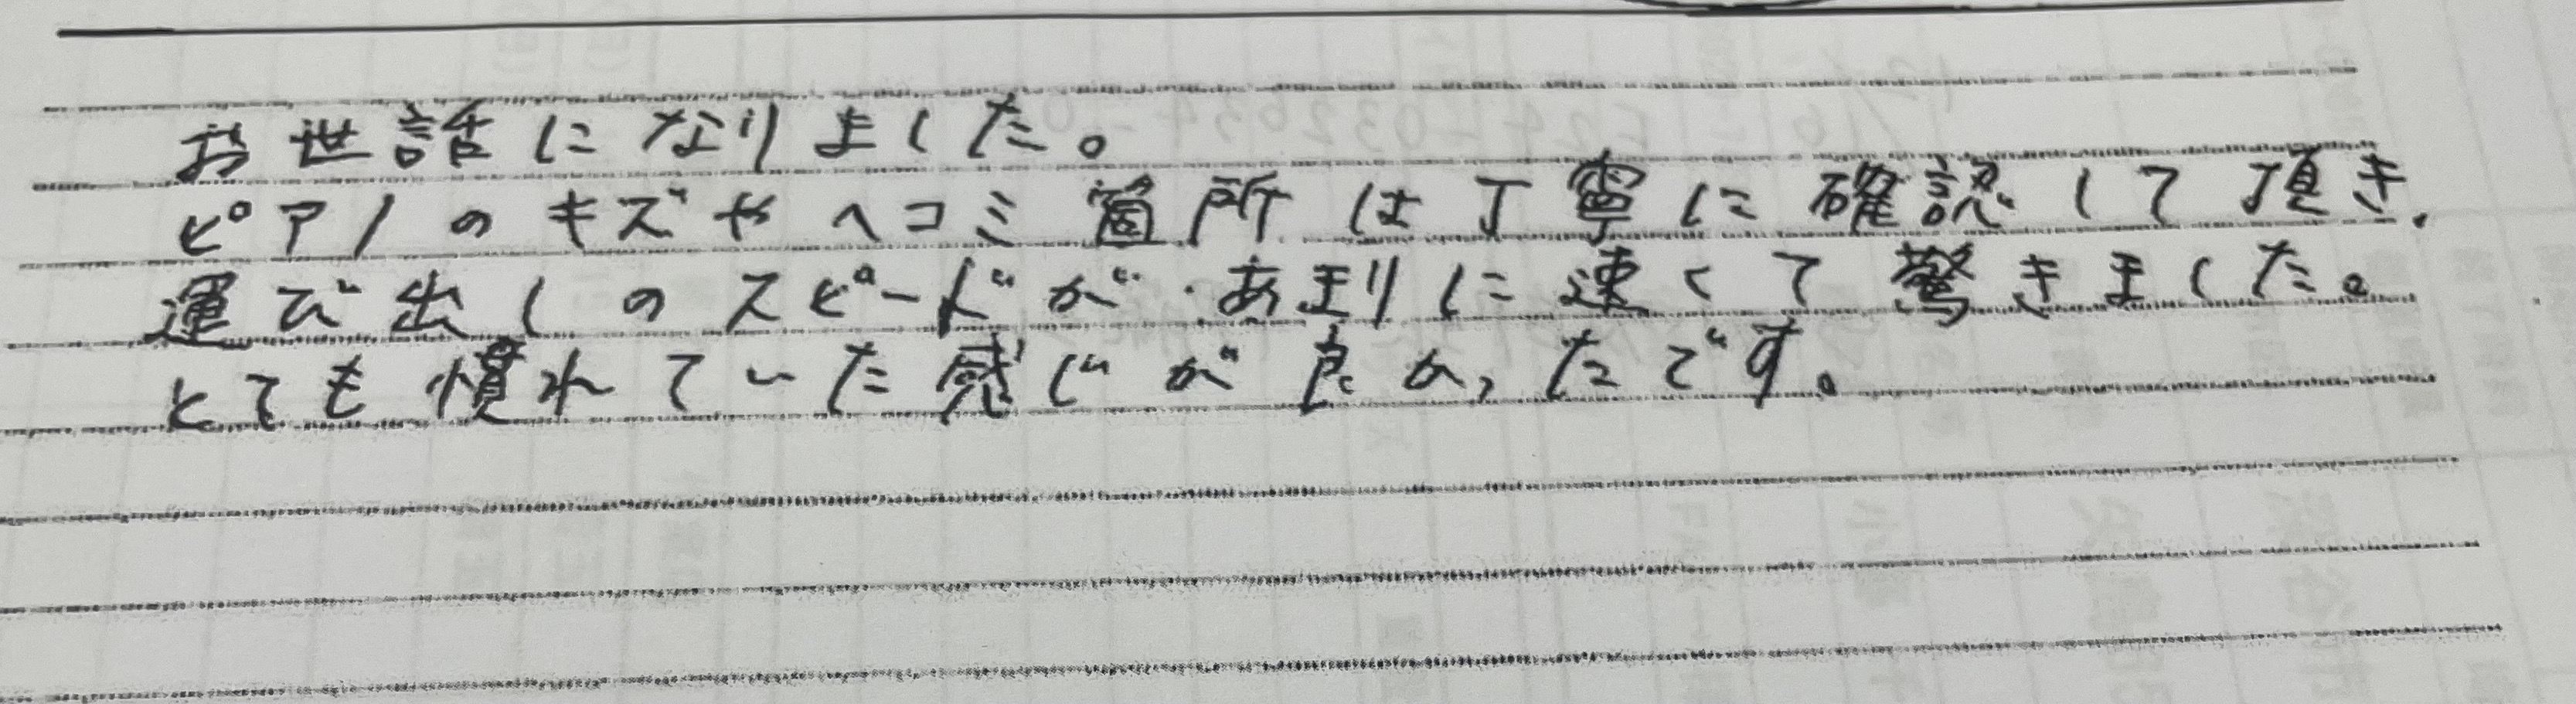 お世話になりました。
ピアノのキズやヘコミ箇所は丁寧に確認して頂き、
運び出しのスピードが、あまりに速くて驚きました。
とても慣れていた感じが良かったです。